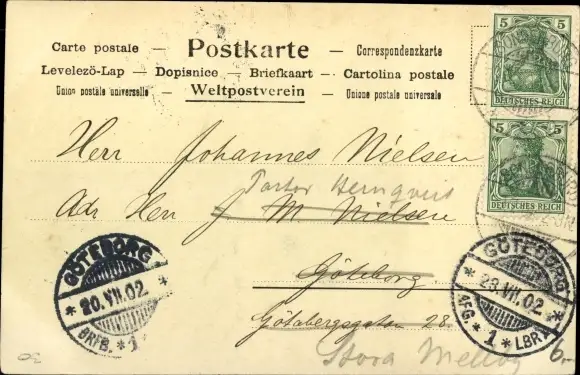 5
DEUTSCHES REICH
Carte postale — Postkarte — Correspondenzkarte
Levelezö-Lap — Dopisnice — Briefkaart — Cartolina postale
Union postale universelle — Weltpostverein — Unione postale universale
5
DEUTSCHES REICH
Herr Johannes Nielsen
Pastor Hernqvist
Adr Herr J M Nielsen
Göteborg
Götabergsgatan 28.
Stora
GÖTEBORG
20.VII.02
BRFB. * 1 *
GÖTEBORG
23.VII.02
4FG * 1 * LBR
6-